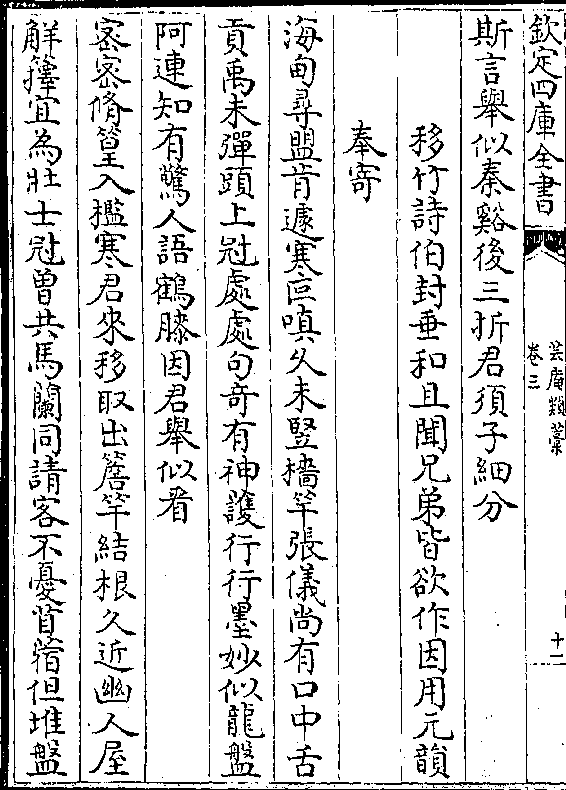 欽定四庫全書
芸庵類藁
卷三
十一
斯言舉似秦谿後三折君須子細分
移竹詩伯封垂和且聞兄弟皆欲作因用元韻
奉寄
海甸尋盟肯遽寒叵嗔久未豎檣竿張儀尚有口中舌
貢禹未彈頭上冠處處句奇有神護行行墨妙似龍盤
阿連知有驚人語鶴膝因君舉似看
密密脩篁入檻寒君來移取出簷竿結根久近幽人屋
解籜宜為壯士冠曽共馬蘭同請客不憂苜蓿但堆盤